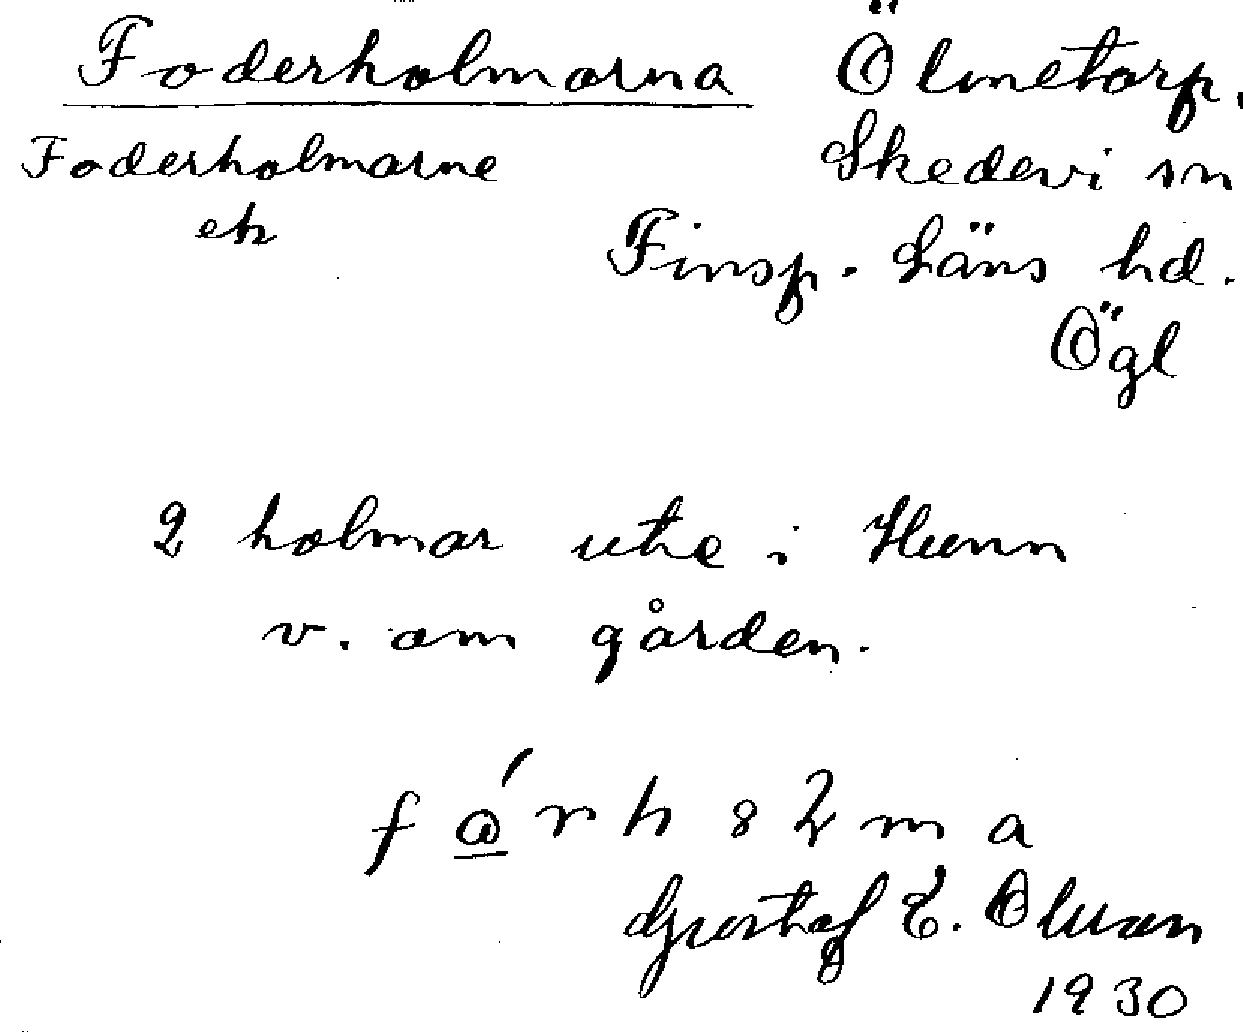 Foderholmarna Ölmetorp.
Foderholmarne Skedevi sn
ek Finsp. Läns hd.
Ögl
2 holmar ute i Hunn
v. om gården.
Gustaf E. Olsson
1930